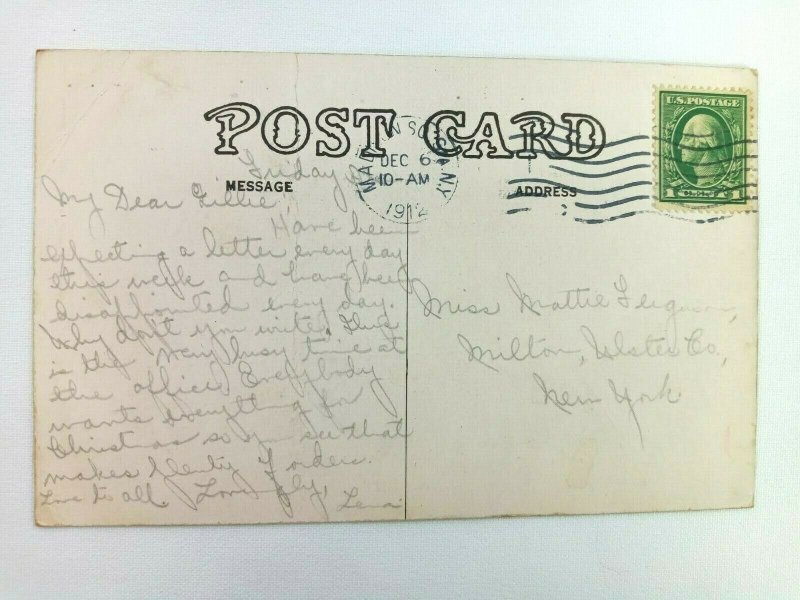 POST CARD
MADISON SQ. STA. N.Y.
DEC 6
10-AM
1912
U.S. POSTAGE
1 1
MESSAGE
ADDRESS
Friday
My Dear Lillie,
Have been
expecting a letter every day
this week and have been
disappointed every day.
Why don't you write. This
is the very busy time at
the office. Everybody
wants everything for
Christmas so you see that
makes plenty of orders.
Love to all. Lovingly,
Lena
Miss Mattie Ferguson,
Milton, Ulster Co,
New York.